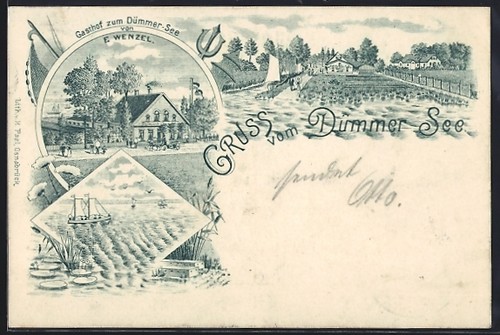 Gasthof zum Dümmer-See
von
F. WENZEL.
GRUSS
vom Dümmer See
sendet
Otto.